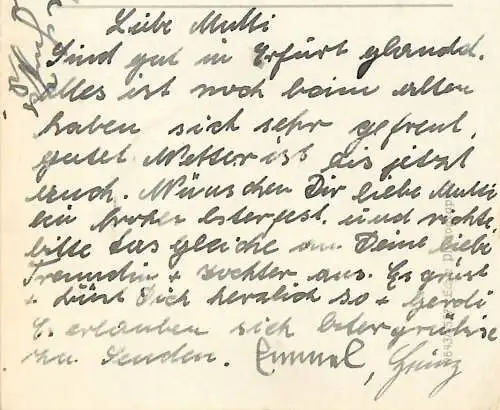 Liebe Mutti
Sind gut in Erfurt glandd.
alles ist noch beim alten
haben sich sehr gefreut,
gutes Wetter ist bis jetzt
auch. Wünschen Dir liebe Mutti
ein Osterfest. und richte
bitte das gleiche an Deine liebe
Freundin + tochter aus. Es grüst
+ küst Dich herzlich so + Gerdi
E. erlauben sich Ostergrüsse
zu senden. Emmel, Heinz